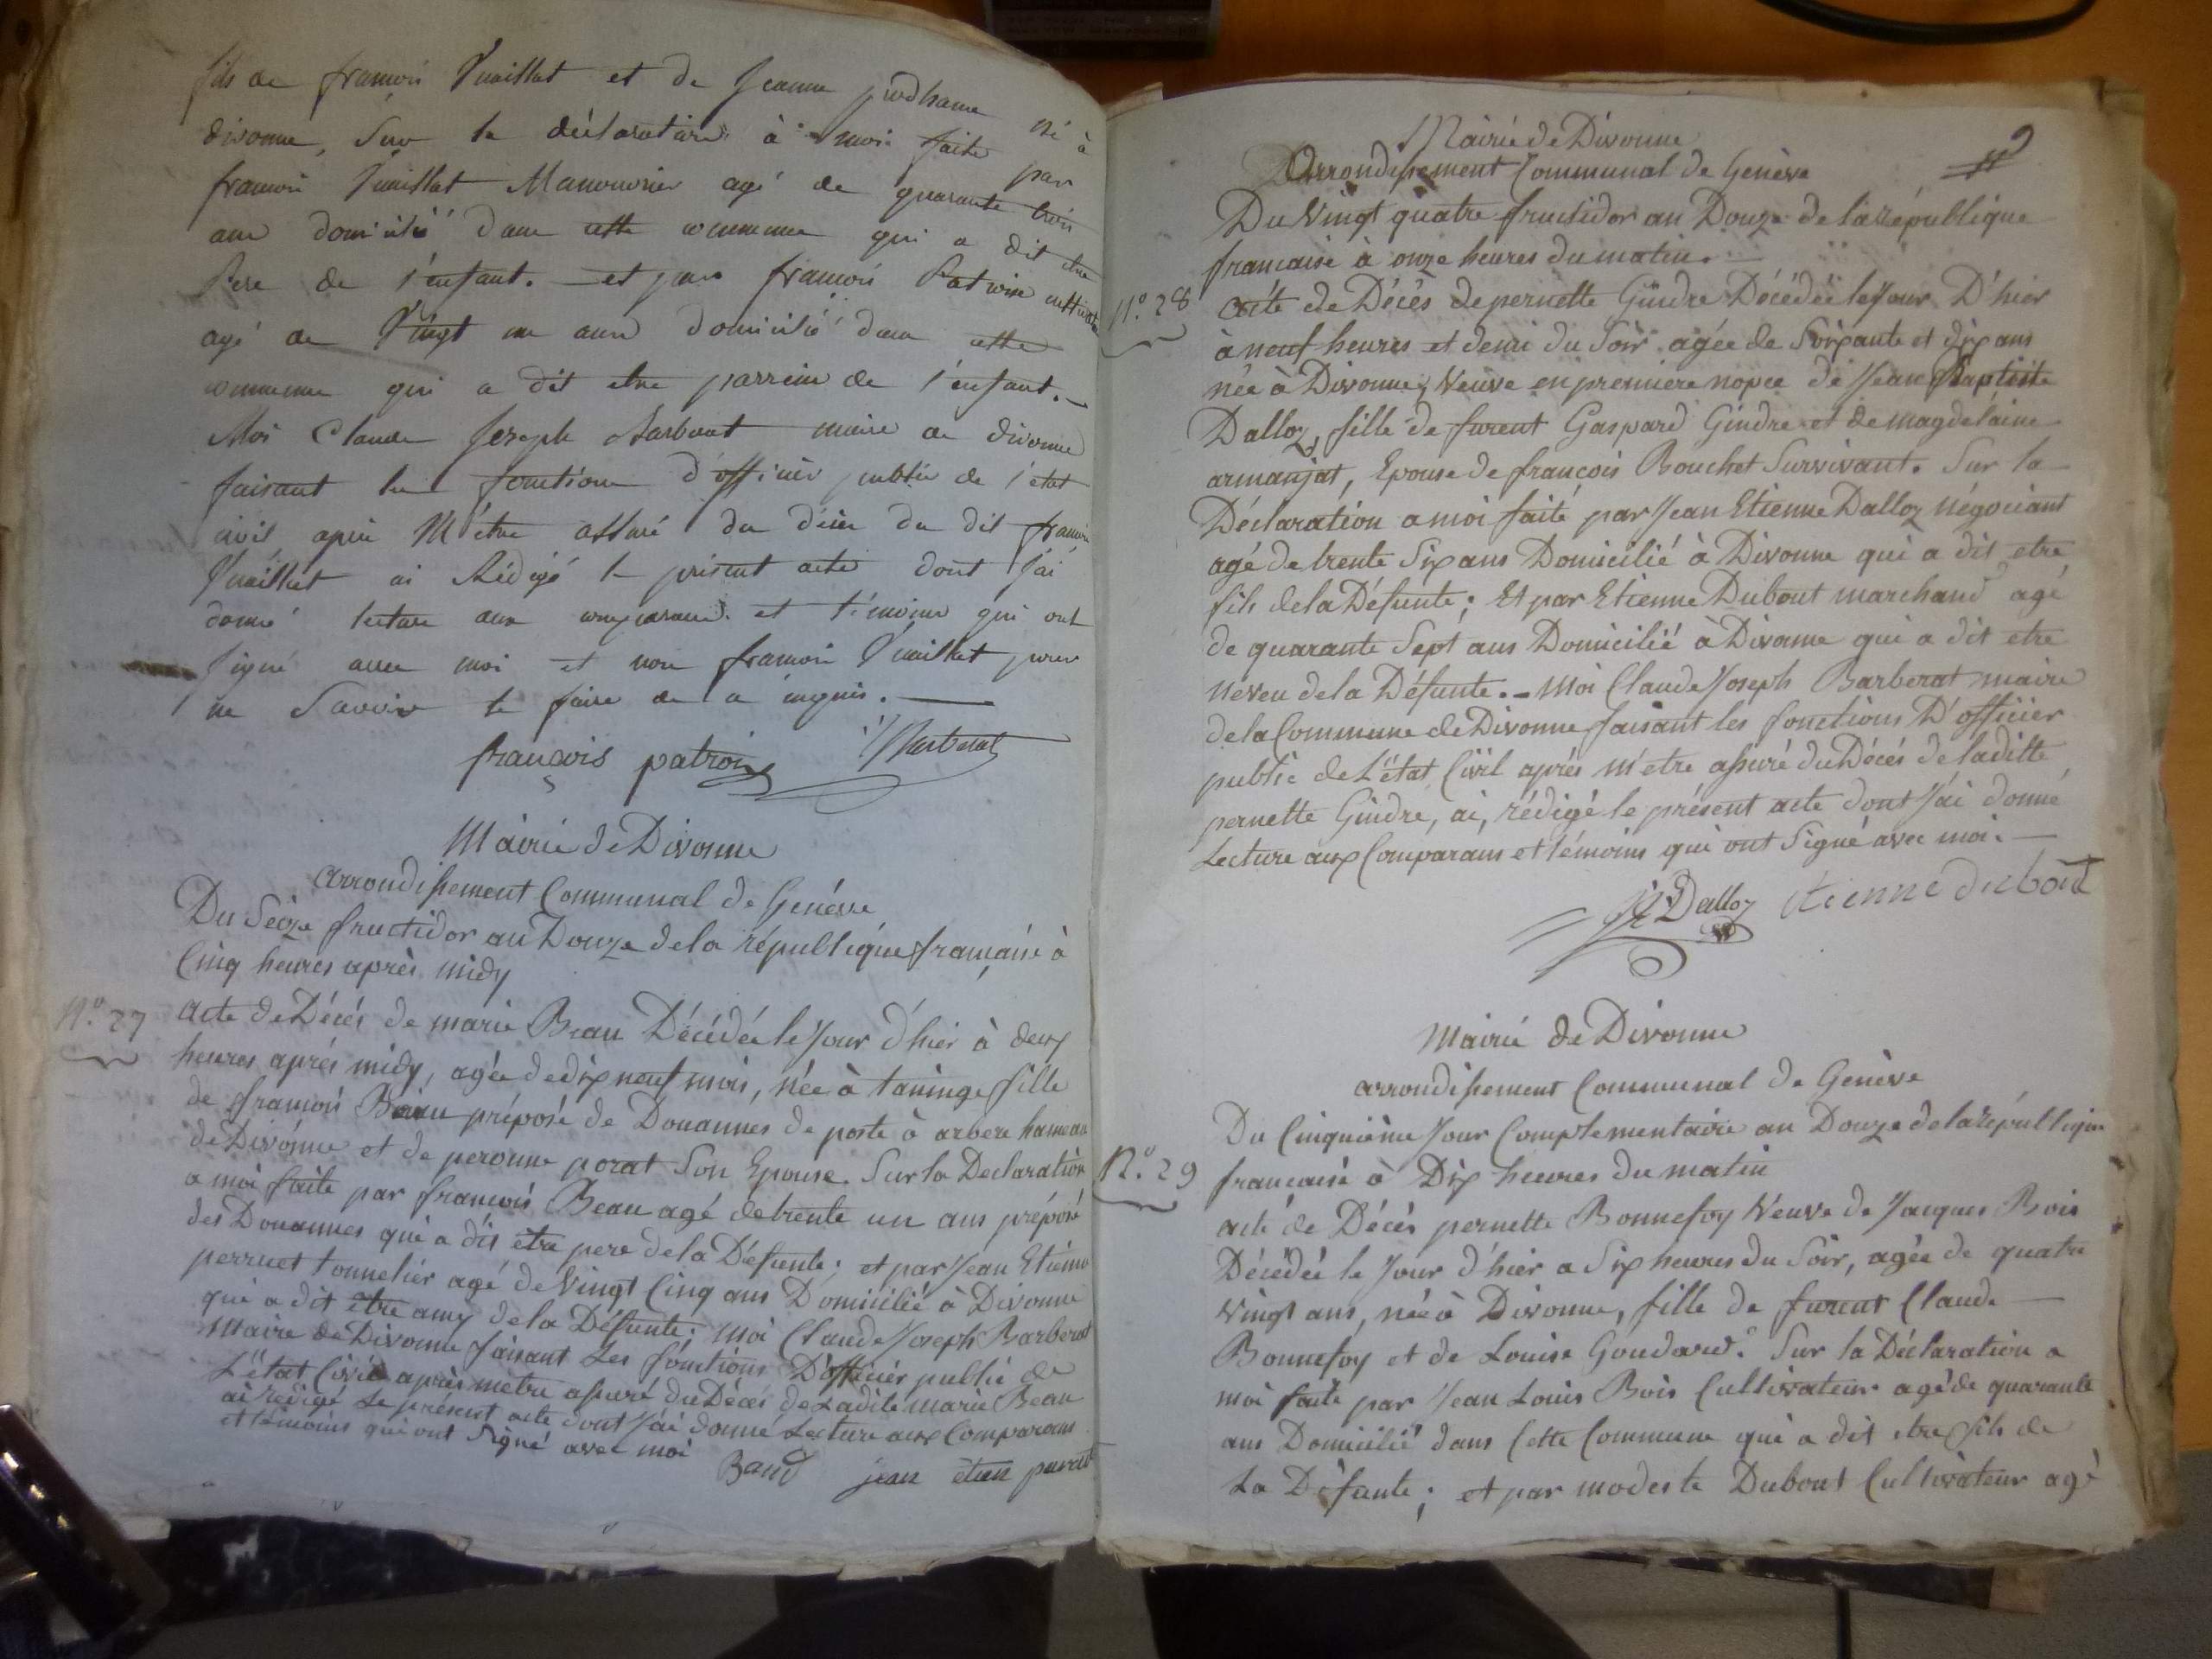 fils de francois Vuaillat et de Jeanne prodhame né à
divonne, Sur la déclaration à moi faite par
francois Vuaillat Manouvrier agé de quarante trois
ans domicilié dans cette commune qui a dit etre
Pere de l'enfant. et par francois Patroix
agé de Vingt un ans domicilié dans cette
commune qui a dit etre parrein de l'enfant.
Moi Claude Joseph Barberat maire de divonne
faisant les fonctions d'officier public de l'etat
civil apres M'etre assuré du déces du dit francois
Vuaillat ai Rédigé le présent acte dont j'ai
donné lecture aux comparans et témoins qui ont
Signé avec moi et non francois Vuaillat pour
ne Savoir le faire de ce enquis.
françois patroix Barberat
Mairie de Divonne
arrondissement Communal de Genève
Du Seize fructidor an Douze de la république française à
Cinq heures après midy
N.º 27 acte de Décés de marie Beau Décédée le Jour d'hier à deux
heures après midy, agée de dix neuf mois, née à taninge fille
de francois Beau préposé de Douannes de poste à arbere hameau
de Divonne et de peronne porat Son Epouse. Sur la Declaration
a moi faite par francois Beau agé de trente un ans préposé
des Douannes qui a dit etre pere de la Défunte; et par Jean Etienne
perruet tonnelier agé de Vingt Cinq ans Domicilié à Divonne
qui a dit être amy de la Défunte; Moi Claude Joseph Barberat
Maire de Divonne faisant Les fonctions D'officier public de
L'état Civil après mètre assuré du Décés de Ladite marie Beau
ai redigé Le présent acte dont J'ai donné Lecture aux Comparans
et témoins qui ont Signé avec moi
Baud jean etien
9
Mairie de Divonne
Arrondissement Communal de Genève
Du Vingt quatre fructidor an Douze de la république
francaise à onze heures du matin.
N.º 28 acte de Décès de pernette Gindre Décédée le Jour D'hier
à neuf heures et demi du Soir agée de Soixante et dix ans
née à Divonne, Veuve en premiere nopce de Jean Baptiste
Dalloz, fille de furent Gaspard Gindre et de magdelaine
armanjat, Epouse de françois Bouchet Survivant. Sur la
Déclaration a moi faite par Jean Etienne Dalloz négociant
agé de trente Six ans Domicilié à Divonne qui a dit etre
fils de la Défunte; Et par Etienne Dubout marchand agé
de quarante Sept ans Domicilié à Divonne qui a dit etre
neveu de la Défunte. Moi Claude Joseph Barberat maire
de la Commune de Divonne faisant les fonctions D'officier
public de L'état Civil après m'etre assuré du Décés de laditte
pernette Gindre, ai, rédigé le présent acte dont J'ai donné
Lecture aux Comparans et témoins qui ont Signé avec moi.
Dalloz etienne dubout
Mairie de Divonne
arrondissement Communal de Genève
Du Cinquième Jour Complementaire an Douze de la république
N.º 29 francaise à Dix heures du matin
acte de Décés pernette Bonnefoy Veuve de Jacques Bois
Décédée le Jour d'hier a Six heures du Soir, agée de quatre
vingt ans, née à Divonne, fille de furent Claude
Bonnefoy et de Louise Goudard. Sur la Déclaration a
moi faite par Jean Louis Bois Cultivateur agé de quarante
ans Domicilié dans Cette Commune qui a dit etre fils de
La Défunte; et par modeste Dubout Cultivateur agé